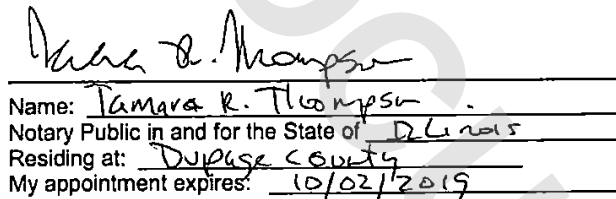 Tamara R. Thompson
Name: Tamara R. Thompson
Notary Public in and for the State of Illinois
Residing at: Dupage County
My appointment expires: 10/02/2019